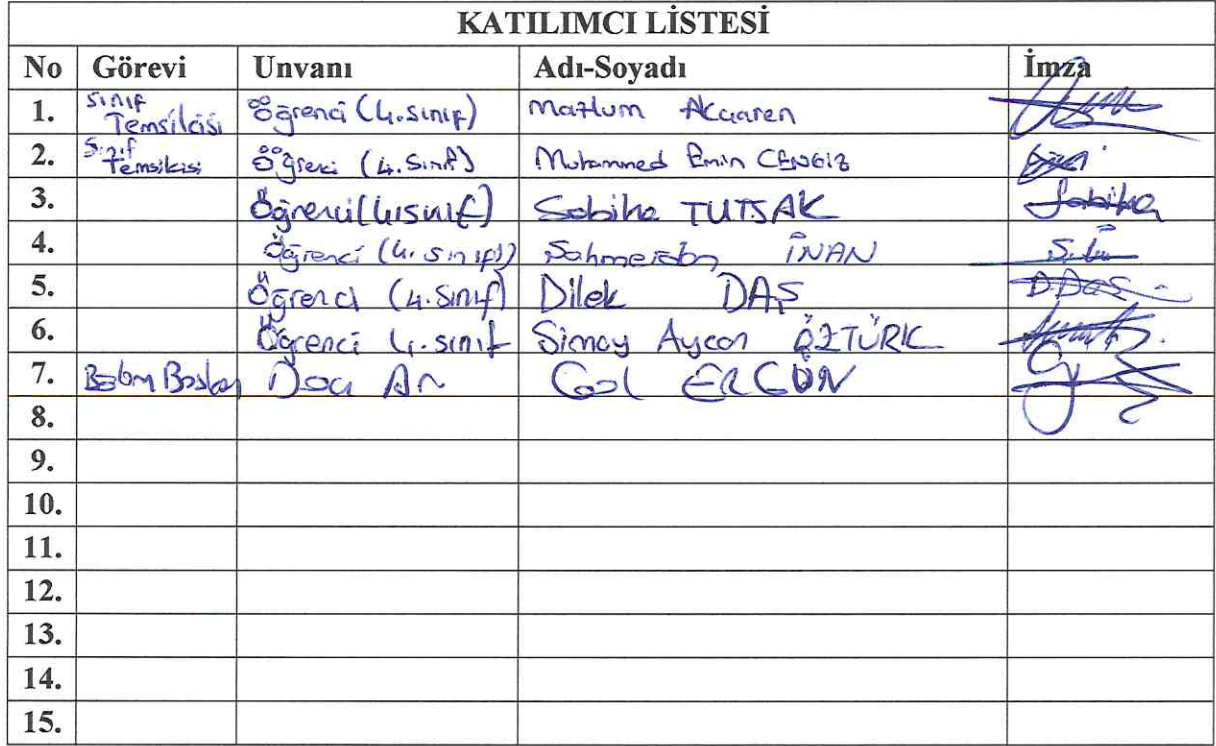 KATILIMCI LİSTESİ
No Görevi Unvanı Adı-Soyadı İmza
1. Sınıf Temsilcisi Öğrenci (4.sınıf) Mazlum
2. Sınıf Temsilcisi Öğrenci (4.Sınıf) Muhammed Emin CENGİZ
3. Öğrenci (4.sınıf) Sabiha TUTSAK Sabiha
4. Öğrenci (4. sınıf) İNAN
5. Öğrenci (4.Sınıf) Dilek DAŞ D.DAŞ
6. Öğrenci 4.sınıf Simay Aycan ÖZTÜRK
7. Bölüm Başkan ERGÜN
8.
9.
10.
11.
12.
13.
14.
15.